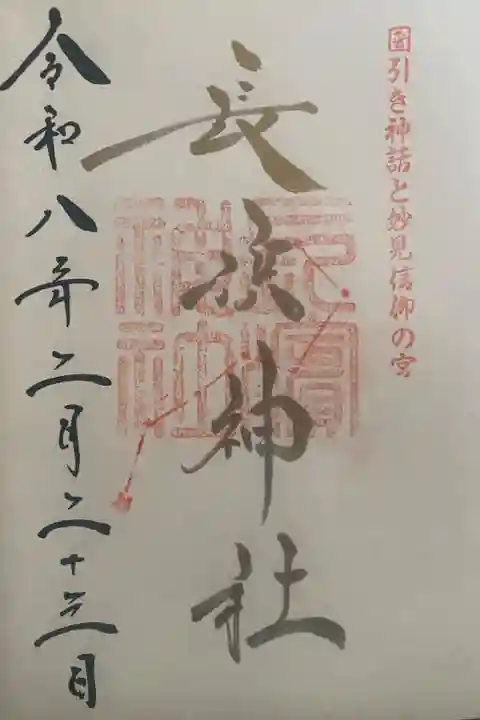 國引き神話と妙見信仰の宮
長浜神社
令和八年二月二十三日